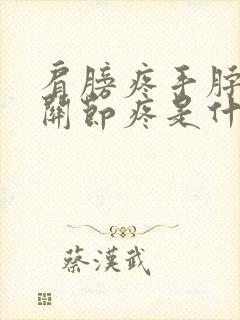 肩膀疼手脖
關節疼是什
蔡漢武